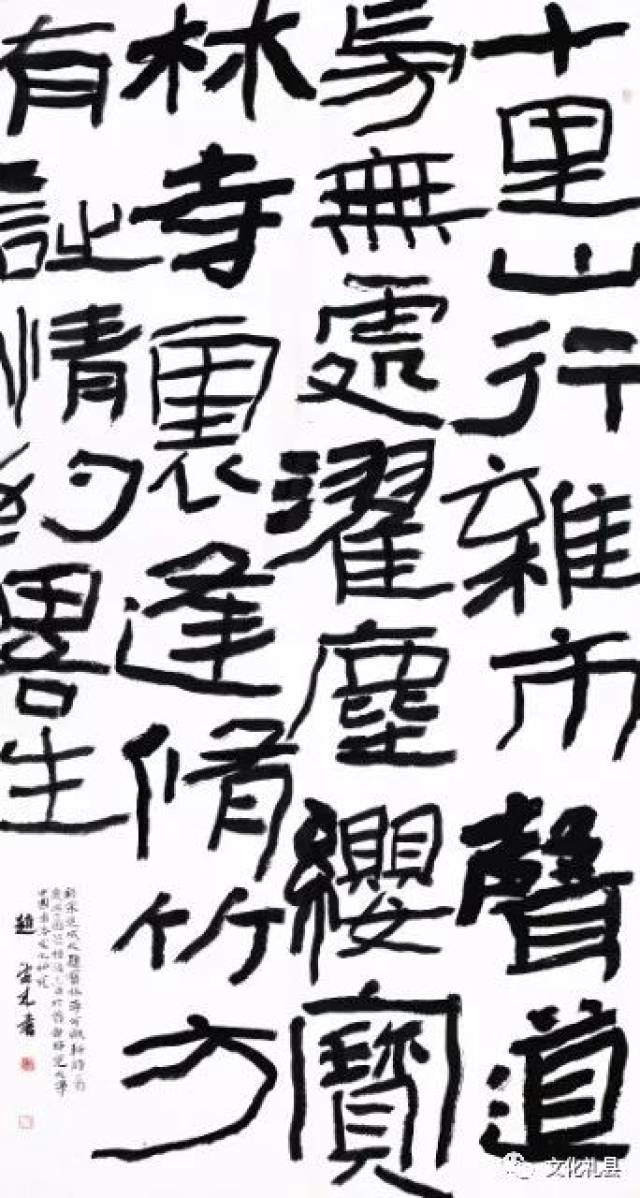 十里山行雜市聲道
旁無處濯塵纓寶
林寺裏逢脩竹方
有詩情約畧生
文化礼县